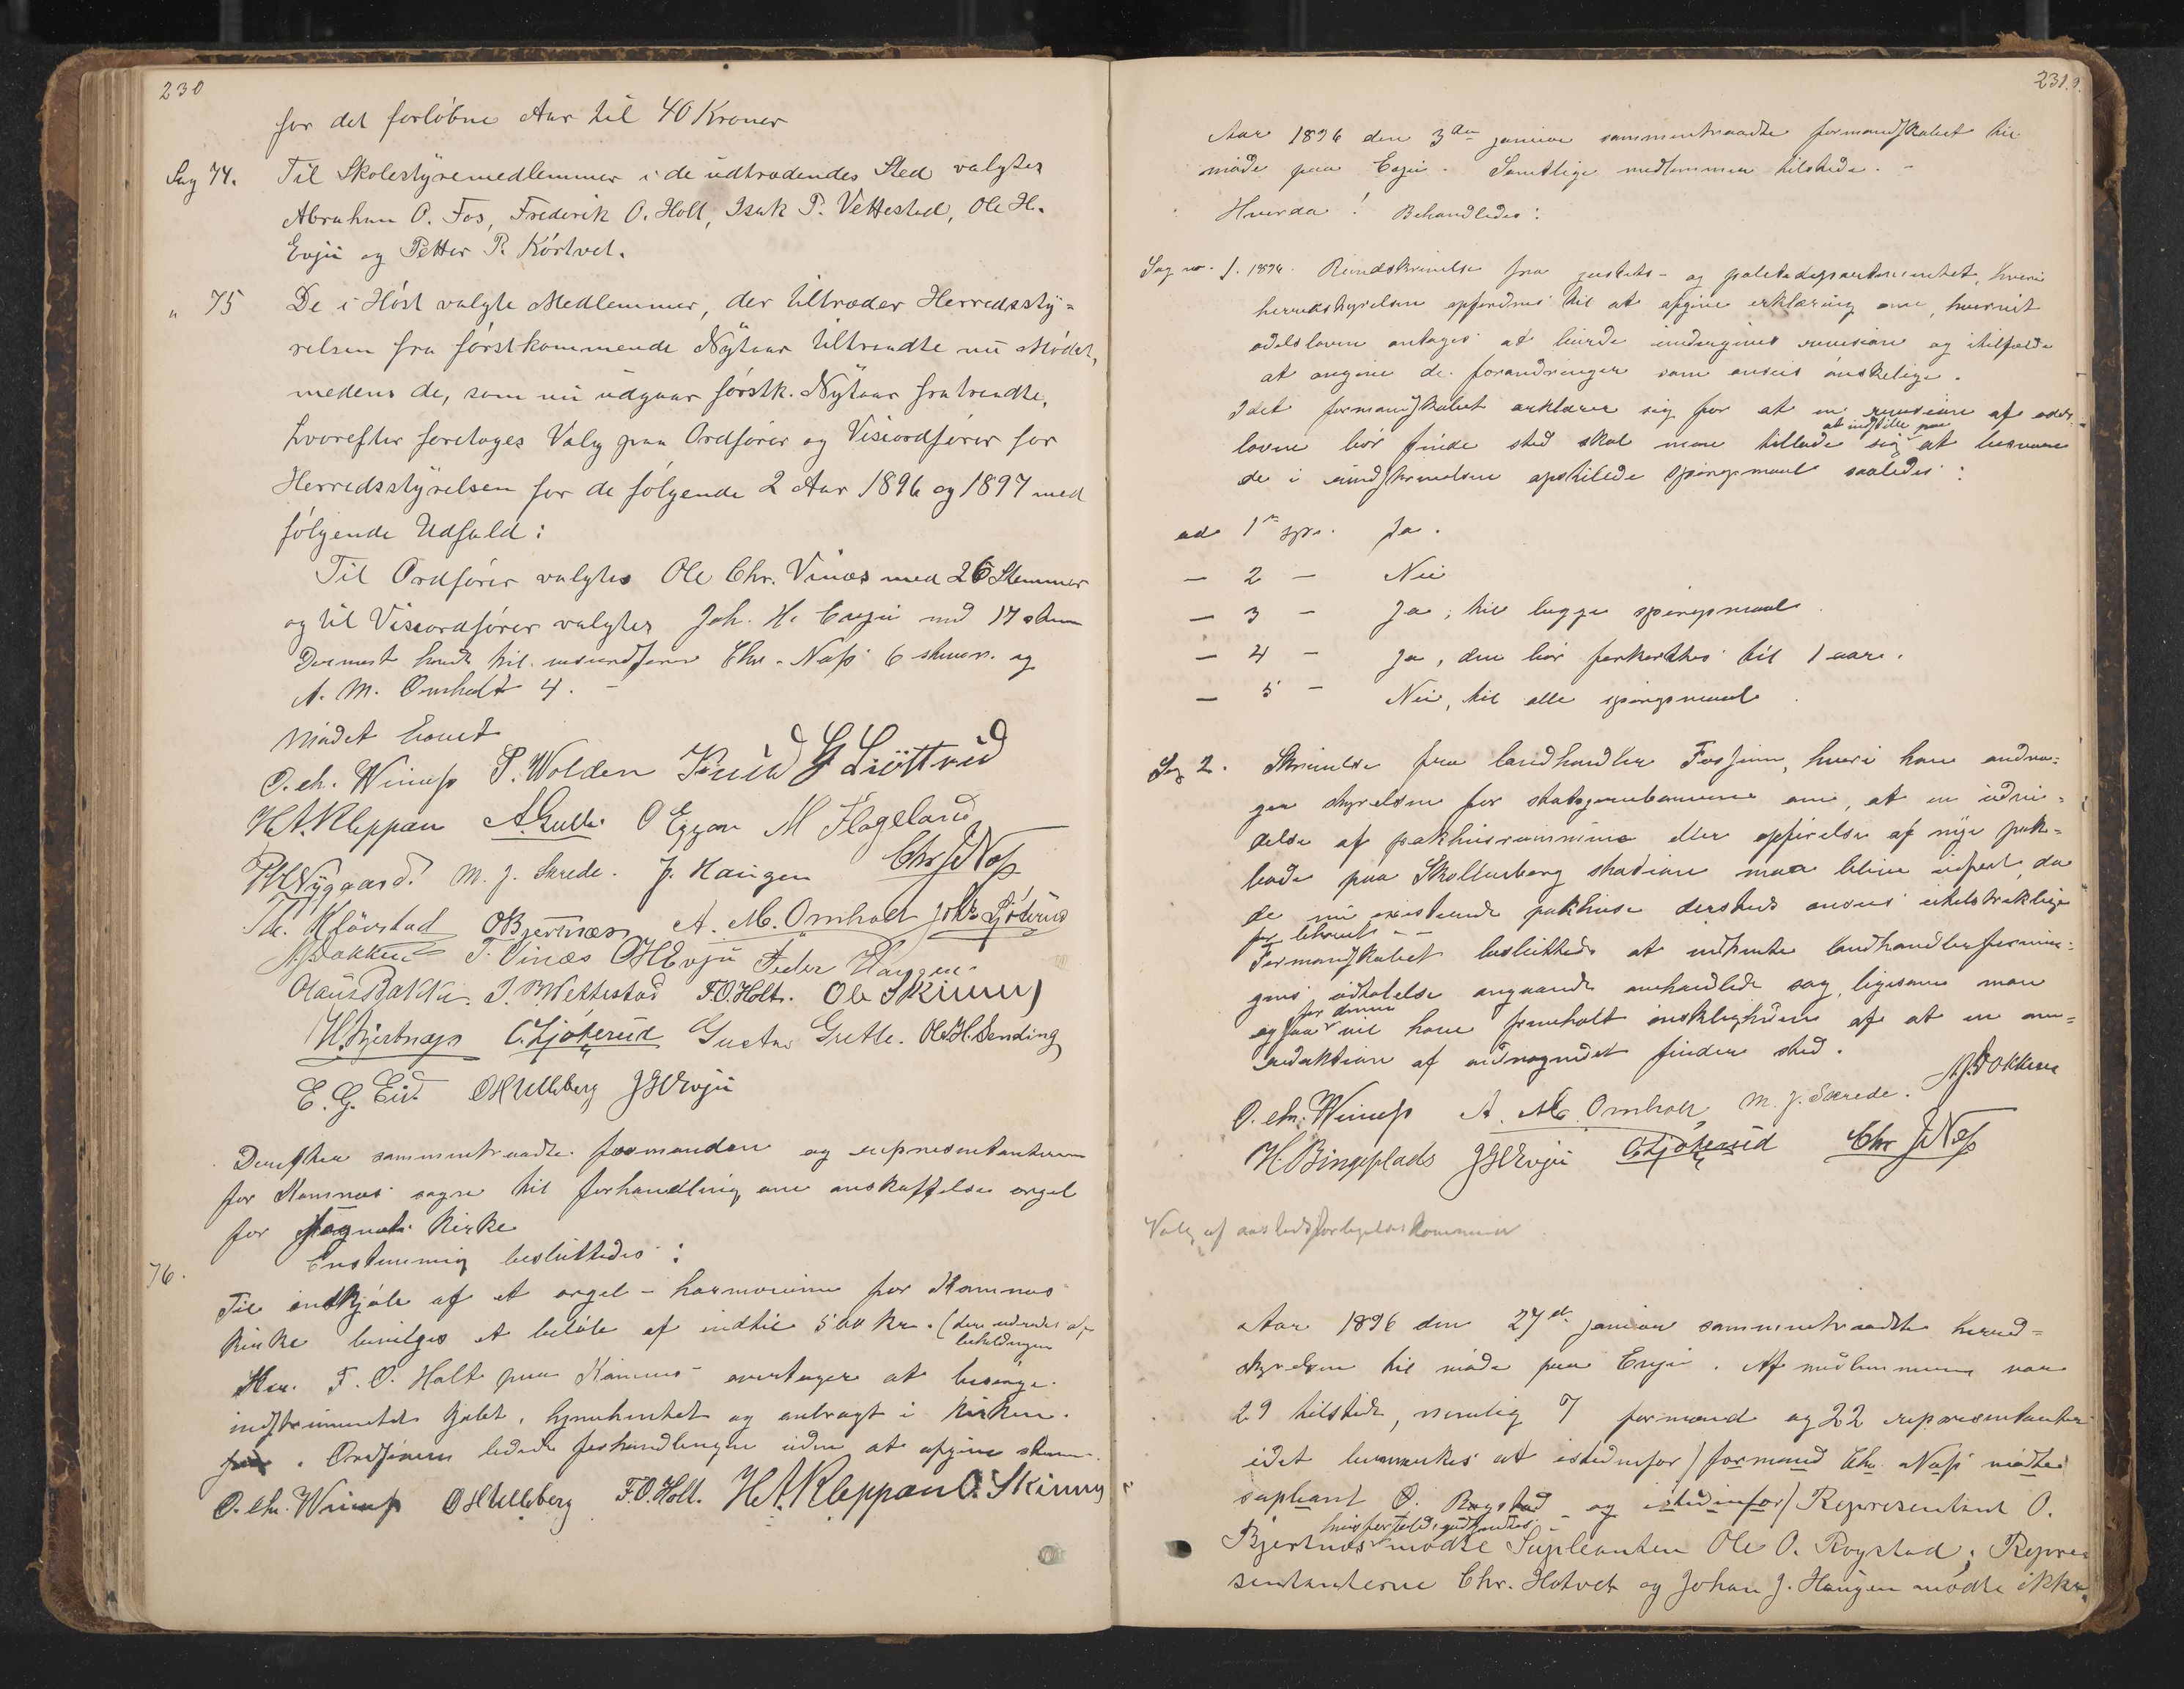 230
for det forløbne Aar til 40 Kroner
Sag 74. Til Skolestyremedlemmer i de udtrædendes Sted valgtes
Abraham O. Fos, Frederik O. Holt, Isak P. Vettestad, Ole H.
Evju og Petter P. Kørtvet.
" 75 De i Høst valgte Medlemmer, der tiltræder Herredssty-
relsen fra førstkommende Nytaar tiltraadte nu Mødet,
medens de, som nu udgaar førstk. Nytaar fratraadte,
hvorefter foretoges Valg paa Ordfører og Viseordfører for
Herredsstyrelsen for de følgende 2 Aar 1896 og 1897 med
følgende Udfald:
Til Ordfører valgtes Ole Chr. Vinæs med 26 Stemmer
og til Viseordfører valgtes Joh. H. Evju med 17 stem
Dernæst havde til viseordfører Chr. Næss 6 stemm. og
A. M. Omholt 4. -
Mødet hævet
O. Chr. Winæss S. Wolden Knud G Liøttrud
H.A. Kleppan A. Gulli O Eggar M Hageland
M. J. Skrede. J. Haugen Chr J Næss
Th. Kløvstad O Bjertnæs A. M. Omholt Joh. Ljøterud
A. Bakken T. Vinæs OH Evju Peder Haugen
Olaus Bakka. I. P. Wettestad F.O. Holt. Ole Skinnes
H. Bjertnæss C. Ljøterud Gustav Grette. Ole H. Sending
E. G. Eid OH Ulleberg JH Evju
Derefter sammentraadte formænden og representanterne
for Komnæs sogn til forhandling om anskaffelse orgel
for sognets kirke
Enstemmig besluttedes:
76. Til indkjøb af et orgel - harmonium for Komnæs
kirke bevilges et beløb af indtil 500 kr. (der udredes af
beholdningen
Hr. F. O. Holt paa Komnæs overtager at besørge
indstrumentet kjøbt, hjemhentet og anbragt i kirken.
. Ordføreren ledede forhandlingen uden at afgive stem
O. Chr. Winæss OH Ulleberg F.O. Holt. H.A. Kleppan O. Skinnes
231.
Aar 1896 den 3die januar sammentraadte formandskabet til
møde paa Evju. Samtlige medlemmer tilstede. -
Hvorda! Behandledes:
Sag no. 1. 1896. Rundskrivelse fra justits- og politidepartementet, hvori
herredsstyrelsen opfordres til at afgive erklæring om, hvorvidt
odelsloven antages at burde undergives revision og itilfælde
at angive de forandringer som ansees ønskelige.
Idet formandskabet erklærer sig for at en revision af odels-
at indstille paa
loven bør finde sted skal man tillade sig at besvare
de i rundskrivelsen opstillede spørgsmaal saaledes:
ad 1ste sps. Ja.
— 2 — Nei
— 3 — Ja, til begge spørgsmaal
— 4 — Ja, den bør forkortes til 1 aar.
— 5 — Nei, til alle spørgsmaal.
Sag 2. Skrivelse fra landhandler Fossum, hvori han andra-
ger styrelsen for statsjernbanerne om, at en udvi-
delse af pakhusrummene eller opførelse af nye pak-
bode paa Skollenborg station maa blive udført, da
de nu existerende pakhuse dersteds ansees utilstrækkelige
for behovet - -
Formandskabet besluttede at indhente landhandlerforenin-
gens udtalelse angaaende omhandlede sag, ligesom man
for denne
ogsaa vil have fremholdt ønskeligheden af at en om-
redaktion af andragendet finder sted.
O. Chr. Winæss A. M. Omholt, M. J. Skrede. A. Bakken
H. Bingeplads JH Evju C. Ljøterud Chr J Næss
Valg af aastedsforligelseskommission
Aar 1896 den 27de januar sammentraadte herred-
styrelsen til møde paa Evju. Af medlemmerne var
29 tilstede, nemlig 7 formænd og 22 representanter
idet bemærkes at istedenfor formand Chr. Næss mødte
supleant O. Rogstad og istedenfor Representant O.
hvis forfald godkjendtes
Bjertnæs mødte Supleanten Ole O. Rogstad; Repre-
sentanterne Chr. Hotvet og Johan J. Haugen mødte ikke.